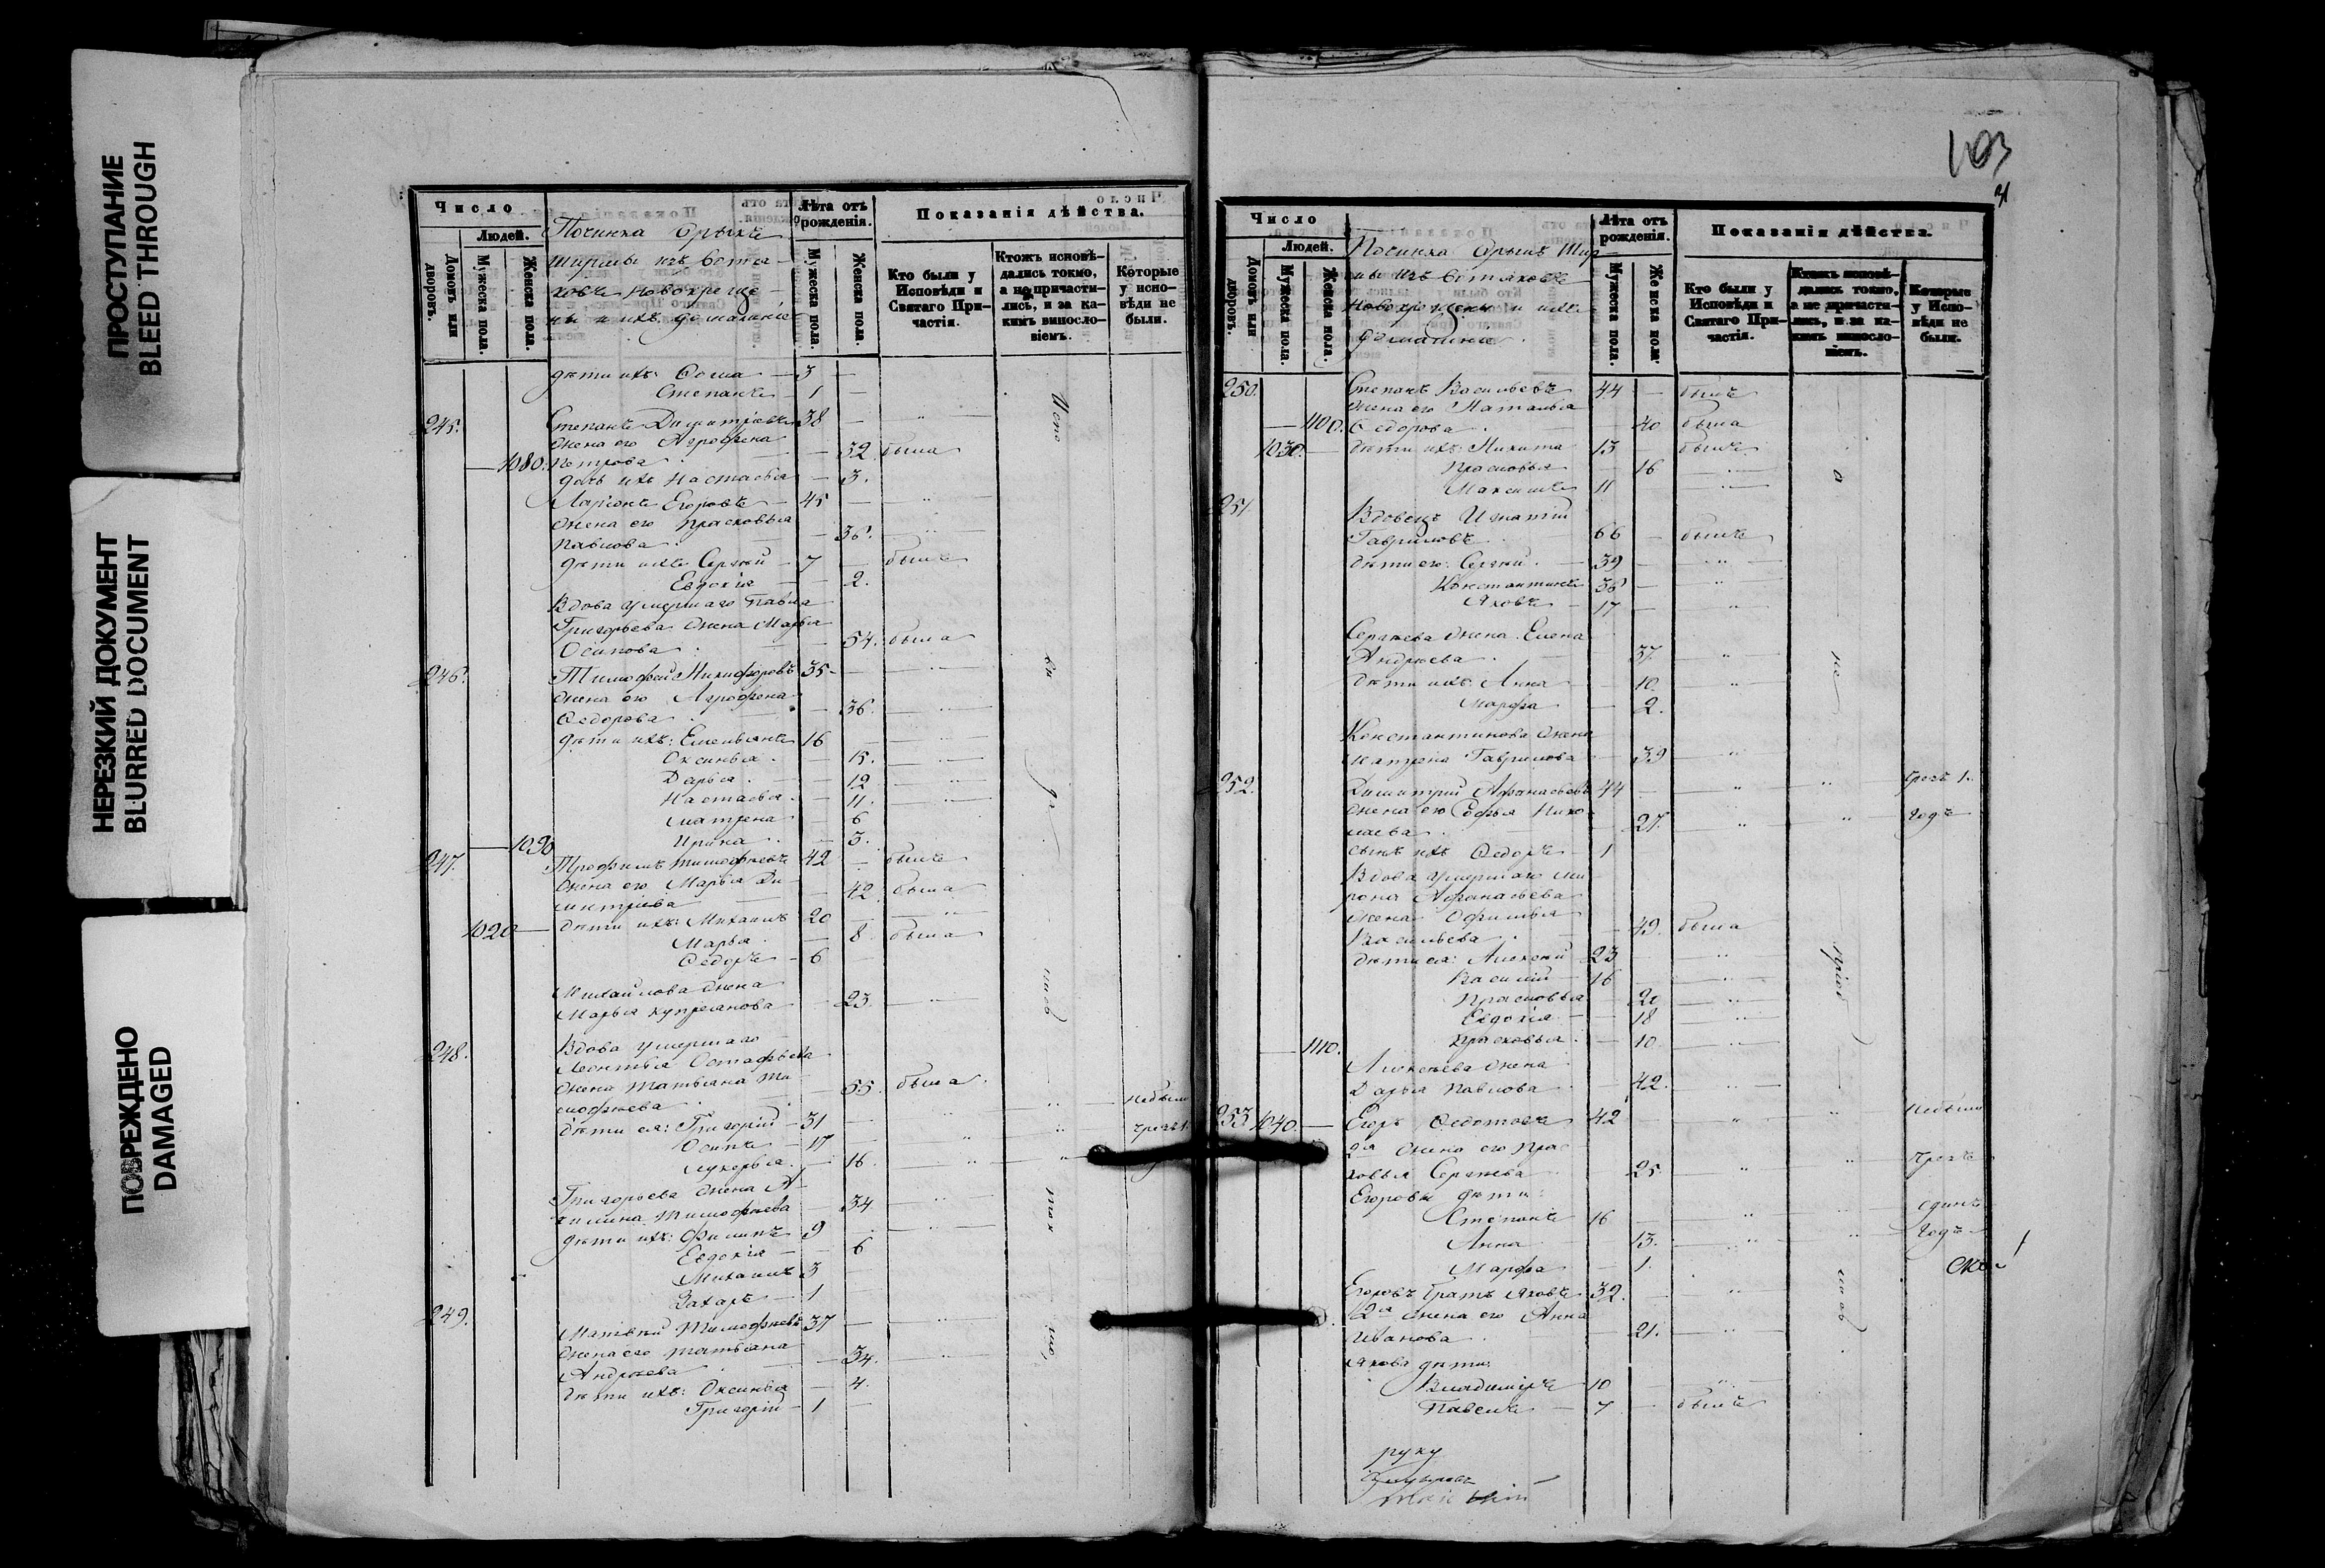 ПРОСТУПАНИЕ
BLEED THROUGH
НЕРЕЗКИЙ ДОКУМЕНТ
BLURRED DOCUMENT
ПОВРЕЖДЕНО
DAMAGED
Число
Людей.
Домовъ или дворовъ.
Мужеска пола.
Женска пола.
Починка
изъ вотя-
ковъ новокреще-
ны и ихъ домашніе
Лѣта отъ рожденія.
Мужеска пола.
Женска пола.
Показанія дѣйства.
Кто были у Исповѣди и Святаго При-частія.
Ктожъ исповѣ-дались токмо, а не причасти-лись, и за ка-кимъ виносло-віемъ.
Которые у испо-вѣди не были.
дѣти ихъ: Ѳома — 3 —
Степанъ — 1 —
245. Степанъ Димитріевъ 38 — "
жена его Агрофена
1080. Петрова — 32. была
дочь ихъ Настасья — 3.
Ларіонъ Егоровъ — 45 — "
жена его Прасковья
Павлова — 36. "
дѣти ихъ: Сергѣй — 7 — былъ
Евдокія — 2.
Вдова умершаго Павла
Григорьева жена Марья
Осипова — 54. была
246. Тимофей Никифоровъ 35 — "
жена его Агрофена
Ѳедорова — 36. "
дѣти ихъ: Емельянъ 16 — "
Оксинья — 15. "
Дарья — 12 "
Настасья — 11. "
Матрена — 6
1090 Ирина — 3.
247. Трофимъ Тимофѣевъ 42 — былъ
жена его Марья Ди-
митріева — 42. была
1020 — дѣти ихъ: Михаилъ 20 — "
Марья — 8. была
Ѳедоръ — 6 —
Михайлова жена
Марья Купреянова — 23. "
248. Вдова умершаго
Леонтья Остафьева
жена Татьяна Ти-
мофѣева — 55. была
дѣти ея: Григорій — 31 — " " не были
Осипъ — 17 — " " чрезъ 1.
Лукерья — 16. " "
Григорьева жена А-
килина Тимофѣева — 34 "
дѣти ихъ: Филипъ 9 — "
Евдокія — 6
Михаилъ 3 —
Захаръ — 1 —
249. Матвѣй Тимофѣевъ 37 — "
жена его Татьяна
Андреева — 34. "
дѣти ихъ: Оксинья — 4.
Григорій — 1 —
Число
Людей.
Домовъ или дворовъ.
Мужеска пола.
Женска пола.
Починка
изъ вотяковъ
новокрещены и ихъ
домашніе
Лѣта отъ рожденія.
Мужеска пола.
Женска пола.
Показанія дѣйства.
Кто были у Исповѣди и Святаго При-частія.
Ктожъ исповѣ-дались токмо, а не причасти-лись, и за ка-кимъ виносло-віемъ.
Которые у Испо-вѣди не были.
250. Степанъ Васильевъ 44 — былъ
жена его Наталья
1100. Ѳедорова — 40 была
1030. — дѣти ихъ: Никита 13 — былъ
Прасковья — 16 "
Максимъ 11 "
251 Вдовецъ Игнатій
Гавриловъ 66 — былъ
дѣти его: Сергѣй — 39 — "
Константинъ 36 — "
Яковъ — 17 — "
Сергѣева жена Елена
Андреева — 37. "
дѣти ихъ: Анна — 10. "
Марфа — 2.
Константинова жена
Матрена Гаврилова — 39 "
252. Димитрій Афанасьевъ 44 — " " чрезъ 1.
жена его Софья Нико-
лаева — 27. " " годъ
сынъ ихъ Ѳедоръ — 1
Вдова умершаго Ми-
рона Афанасьева
жена Офимья
Васильева — 49. была
дѣти ея: Алексѣй 23 "
Василій — 16 "
Прасковья — 20 "
Евдокія — 18 "
1110. Прасковья — 10. "
Алексѣева жена
Дарья Павлова — 42. "
253 1040. — Егоръ Ѳедотовъ 42 — " " не были
2я жена его Прас-
ковья Сергѣева 25 " " чрезъ
Егоровы дѣти:
Степанъ 16 — " " единъ
Анна — 13. " " годъ
Марфа — 1.
Егоровъ братъ Яковъ 32. — "
2я жена его Анна
Иванова — 21. "
Якова дѣти:
Владиміръ — 10 — "
Павелъ — 7 — былъ
руку